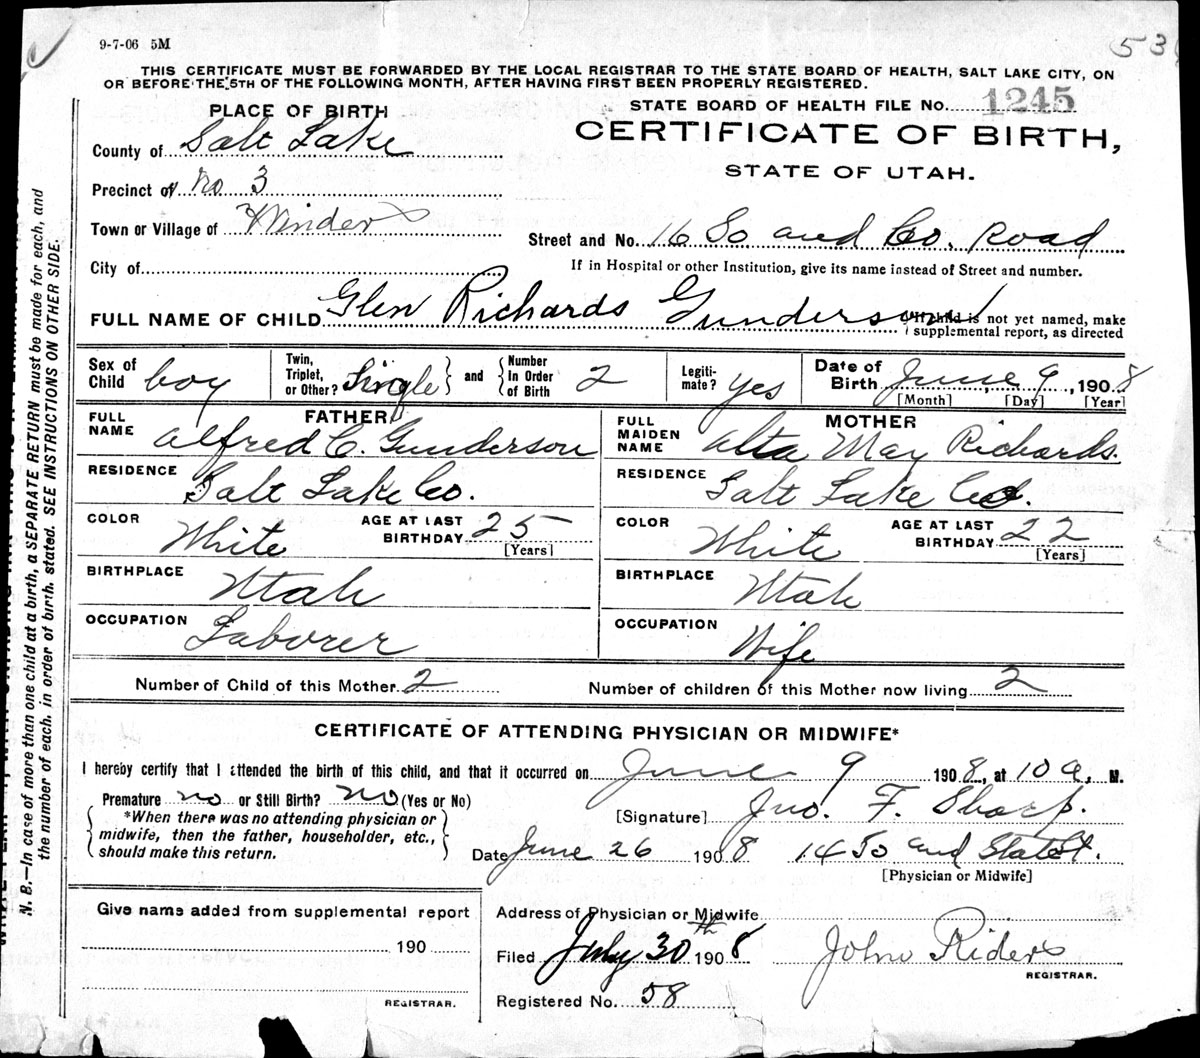 9-7-06 5M
THIS CERTIFICATE MUST BE FORWARDED BY THE LOCAL REGISTRAR TO THE STATE BOARD OF HEALTH, SALT LAKE CITY, ON
OR BEFORE THE 5TH OF THE FOLLOWING MONTH, AFTER HAVING FIRST BEEN PROPERLY REGISTERED.
PLACE OF BIRTH
STATE BOARD OF HEALTH FILE No. 1245
CERTIFICATE OF BIRTH,
STATE OF UTAH.
County of Salt Lake
Precinct of No 3
Town or Village of Winder
Street and No. 16 So and Co. Road
City of
If in Hospital or other Institution, give its name instead of Street and number.
FULL NAME OF CHILD Glen Richards Gunderson
If child is not yet named, make
supplemental report, as directed
Sex of Child boy
Twin, Triplet, or Other? Single and Number In Order of Birth 2
Legitimate? yes
Date of Birth June 9, 1908
[Month] [Day] [Year]
FATHER
FULL NAME Alfred C. Gunderson
RESIDENCE Salt Lake Co.
COLOR White AGE AT LAST BIRTHDAY 25
[Years]
BIRTHPLACE Utah
OCCUPATION Laborer
MOTHER
FULL MAIDEN NAME Alta May Richards.
RESIDENCE Salt Lake Co.
COLOR White AGE AT LAST BIRTHDAY 22
[Years]
BIRTHPLACE Utah
OCCUPATION Wife
Number of Child of this Mother 2 Number of children of this Mother now living 2
CERTIFICATE OF ATTENDING PHYSICIAN OR MIDWIFE*
I hereby certify that I attended the birth of this child, and that it occurred on June 9 1908, at 10 a. M.
Premature no or Still Birth? no (Yes or No)
*When there was no attending physician or
midwife, then the father, householder, etc.,
should make this return.
[Signature] Jno. F. Sharp.
Date June 26 1908 14 So and State St.
[Physician or Midwife]
Give name added from supplemental report
190
REGISTRAR.
Address of Physician or Midwife
Filed July 30th 1908 John Rider
REGISTRAR.
Registered No. 58
N. B.—In case of more than one child at a birth, a SEPARATE RETURN must be made for each, and
the number of each, in order of birth, stated. SEE INSTRUCTIONS ON OTHER SIDE.